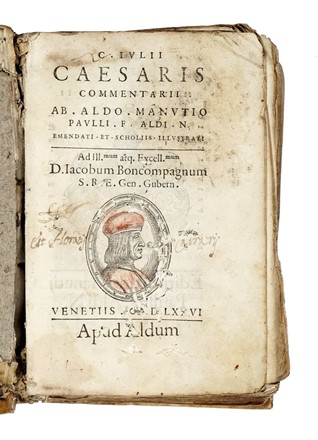 C · IVLII
CAESARIS
COMMENTARII
AB · ALDO · MANVTIO
PAVLLI · F · ALDI · N ·
EMENDATI · ET · SCHOLIIS · ILLVSTRATI
Ad Ill.mum atq. Excell.mum
D. Iacobum Boncompagnum
S. R. E. Gen. Gubern.
VENETIIS
Apud Aldum